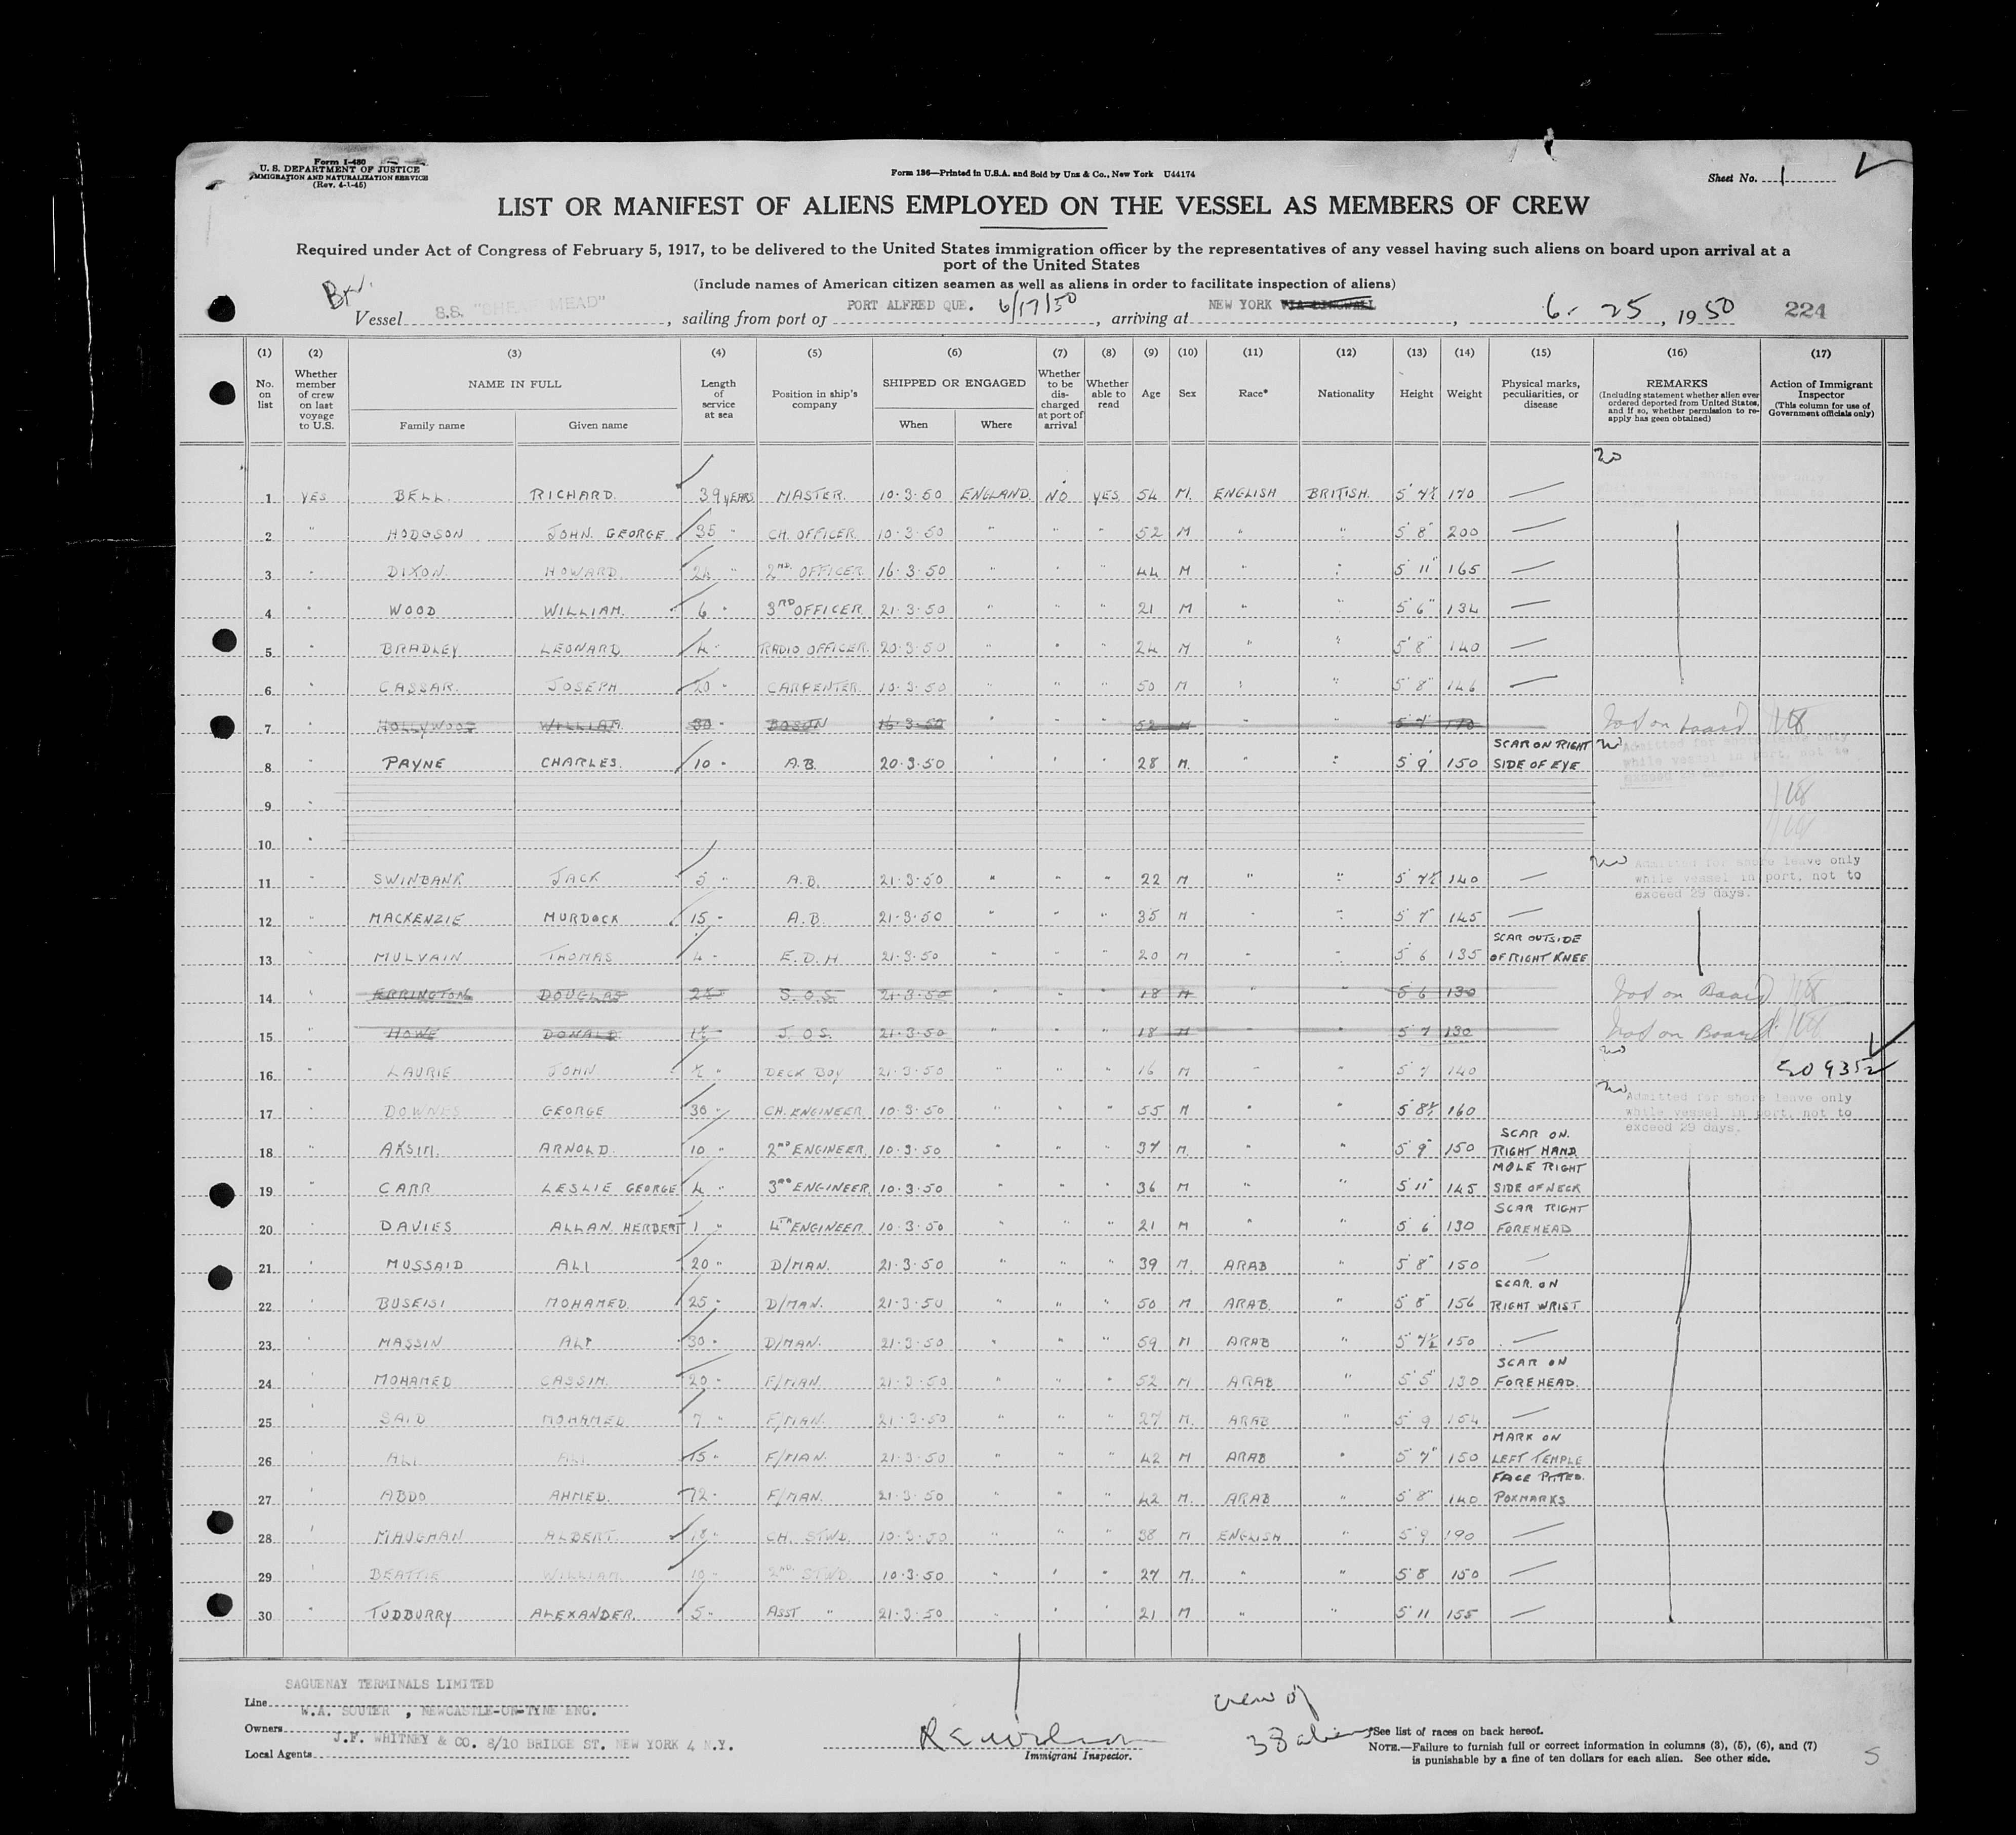 Form I-480
U. S. DEPARTMENT OF JUSTICE
IMMIGRATION AND NATURALIZATION SERVICE
(Rev. 4-1-45)
Form 136—Printed in U.S.A. and Sold by Unz & Co., New York U44174
Sheet No. 1
LIST OR MANIFEST OF ALIENS EMPLOYED ON THE VESSEL AS MEMBERS OF CREW
Required under Act of Congress of February 5, 1917, to be delivered to the United States immigration officer by the representatives of any vessel having such aliens on board upon arrival at a
port of the United States
(Include names of American citizen seamen as well as aliens in order to facilitate inspection of aliens)
Br.
Vessel S.S. "SHEAF MEAD", sailing from port of PORT ALFRED QUE. 6/17/50, arriving at NEW YORK, 6-25, 1950 224
(1) (2) (3) (4) (5) (6) (7) (8) (9) (10) (11) (12) (13) (14) (15) (16) (17)
No. on list
Whether member of crew on last voyage to U.S.
NAME IN FULL
Family name Given name
Length of service at sea
Position in ship's company
SHIPPED OR ENGAGED
When Where
Whether to be discharged at port of arrival
Whether able to read
Age
Sex
Race*
Nationality
Height
Weight
Physical marks, peculiarities, or disease
REMARKS
(Including statement whether alien ever ordered deported from United States, and if so, whether permission to reapply has geen obtained)
Action of Immigrant Inspector
(This column for use of Government officials only)
1 YES BELL. RICHARD. 39 YEARS MASTER. 10·3·50 ENGLAND. NO YES 54 M. ENGLISH BRITISH. 5' 7½ 170 —
2 " HODGSON JOHN. GEORGE 35 " CH. OFFICER. 10·3·50 " " " 52 M " " 5' 8" 200 —
3 " DIXON. HOWARD. 24 " 2ND. OFFICER 16·3·50 " " " 44 M " " 5' 11" 165 —
4 " WOOD WILLIAM. 6 " 3RD OFFICER. 21·3·50 " " " 21 M " " 5' 6" 134 —
5 " BRADLEY LEONARD 4 " RADIO OFFICER. 20·3·50 " " " 24 M " " 5' 8" 140 —
6 " CASSAR. JOSEPH 20 " CARPENTER. 10·3·50 " " " 50 M " " 5' 8" 146 —
7 " HOLLYWOOD WILLIAM. 30 " BOSUN 16·3·50 " " " 52 M " " 5' 7" 170 — Not on board
8 " PAYNE CHARLES. 10 " A.B. 20·3·50 " " " 28 M. " " 5' 9" 150 SCAR ON RIGHT SIDE OF EYE
Admitted for shore leave only
while vessel in port, not to
exceed 29 days.
9 "
10 "
11 " SWINBANK JACK 5 " A.B. 21·3·50 " " " 22 M " " 5' 7½ 140 —
Admitted for shore leave only
while vessel in port, not to
exceed 29 days.
12 " MACKENZIE MURDOCK 15 " A.B. 21·3·50 " " " 35 M " " 5' 7" 145 —
13 " MULVAIN THOMAS 4 " E.D.H 21·3·50 " " " 20 M " " 5' 6 135 SCAR OUTSIDE OF RIGHT KNEE
14 " ERRINGTON DOUGLAS S.O.S. 21·3·50 " " " 18 M " " 5' 6 130 Not on Board
15 " HOWE DONALD J.O.S. 21·3·50 " " " 18 M " " 5' 7 130 Not on Board
16 " LAURIE JOHN ½ " DECK BOY 21·3·50 " " " 16 M " " 5' 7 140
17 " DOWNES GEORGE 30 " CH. ENGINEER. 10·3·50 " " " 55 M " " 5' 8½ 160
Admitted for shore leave only
while vessel in port, not to
exceed 29 days.
18 " AKSIM. ARNOLD. 10 " 2ND ENGINEER. 10·3·50 " " " 37 M. " " 5' 9" 150 SCAR ON. RIGHT HAND
19 " CARR LESLIE GEORGE 4 " 3RD ENGINEER. 10·3·50 " " " 36 M " " 5' 11" 145 MOLE RIGHT SIDE OF NECK
20 " DAVIES ALLAN. HERBERT 1 " 4TH ENGINEER 10·3·50 " " " 21 M " " 5' 6 130 SCAR RIGHT FOREHEAD
21 " MUSSAID ALI 20 " D/MAN. 21·3·50 " " " 39 M. ARAB " 5' 8" 150 —
22 " BUSEISI MOHAMED. 25 " D/MAN. 21·3·50 " " " 50 M ARAB. " 5' 8" 156 SCAR. ON RIGHT WRIST
23 " MASSIN ALI 30 " D/MAN. 21·3·50 " " " 59 M ARAB " 5' 7½ 150 —
24 " MOHAMED CASSIM. 20 " F/MAN. 21·3·50 " " " 52 M ARAB " 5' 5" 130 SCAR ON FOREHEAD.
25 " SAID MOHAMED 7 " F/MAN. 21·3·50 " " " 27 M. ARAB " 5' 9 154 —
26 " ALI ALI 15 " F/MAN. 21·3·50 " " " 42 M ARAB " 5' 7" 150 MARK ON LEFT TEMPLE
27 " ABDO AHMED. 12 " F/MAN. 21·3·50 " " " 42 M. ARAB " 5' 8" 140 FACE PITTED. POXMARKS
28 " MAUGHAN ALBERT. 18 " CH. STWD. 10·3·50 " " " 38 M ENGLISH " 5' 9 190 —
29 " BEATTIE WILLIAM. 10 " 2ND. STWD. 10·3·50 " " " 27 M. " " 5' 8 150 —
30 " TUDBURRY ALEXANDER. 5 " ASST " 21·3·50 " " " 21 M " " 5' 11 155 —
Line SAGUENAY TERMINALS LIMITED
Owners W.A. SOUTER, NEWCASTLE-ON-TYNE ENG.
Local Agents J.F. WHITNEY & CO. 8/10 BRIDGE ST. NEW YORK 4 N.Y.
Immigrant Inspector.
crew of
38 aliens
*See list of races on back hereof.
NOTE.—Failure to furnish full or correct information in columns (3), (5), (6), and (7)
is punishable by a fine of ten dollars for each alien. See other side.
5